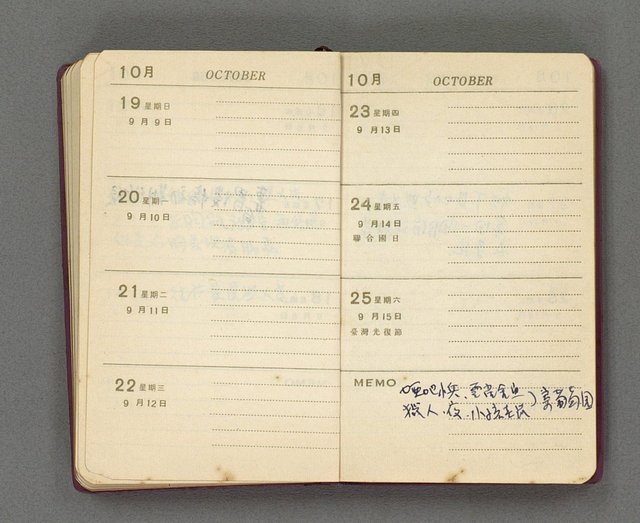 10月 OCTOBER
19 星期日
9月9日
20 星期一
9月10日
21 星期二
9月11日
22 星期三
9月12日
10月 OCTOBER
23 星期四
9月13日
24 星期五
9月14日
聯合國日
25 星期六
9月15日
臺灣光復節
MEMO
獵人.夜.小
葡萄園